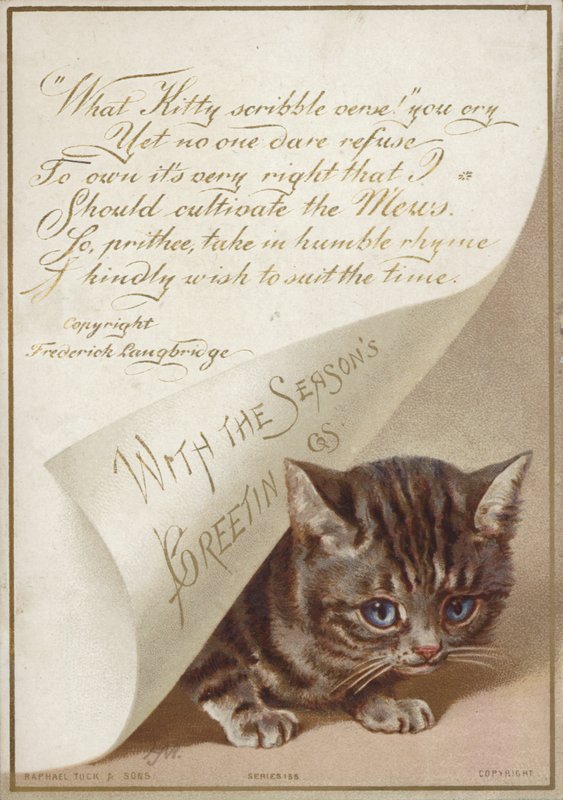 "What Kitty scribble verse!" you cry
Yet no one dare refuse
To own it's very right that I
Should cultivate the Mews.
So, prithee, take in humble rhyme
A kindly wish to suit the time.
Copyright
Frederick Langbridge
WITH THE SEASON'S
GREETINGS.
RAPHAEL TUCK & SONS
SERIES 155
COPYRIGHT